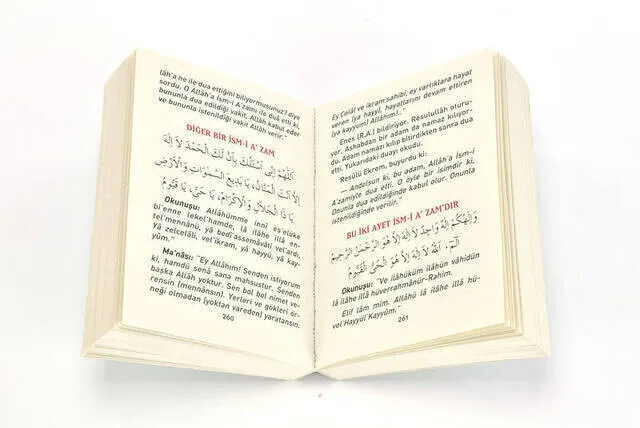 lâh'a ne ile dua ettiğini biliyormusunuz? diye
sordu. O Allâh'a İsm-i A'zamı ile duâ etti ki,
bununla dua edildiği vakit, Allâh kabul eder
ve bununla istenildiği vakit Allâh verir."
DİĞER BİR İSM-İ A' ZAM
اَللّٰهُمَّ اِنِّى اَسْئَلُكَ بِاَنَّ لَكَ الْحَمْدَ لَا اِلٰهَ
اِلَّا اَنْتَ الْمَنَّانُ، يَا بَدِيعَ السَّمٰوَاتِ وَالْاَرْضِ
يَا ذَا الْجَلَالِ وَالْاِكْرَامِ، يَا حَىُّ، يَا قَيُّومُ
Okunuşu: "Allâhümme innî es'elüke
bi'enne lekel'hamde, lâ ilâhe illâ en-
tel'mennânü, yâ bedî'assemâvâti vel'ardı,
Yâ zelcelâli, vel'ikram, yâ hayyü, yâ kay-
yûm."
Ma'nâsı: "Ey Allâhım! Senden istiyorum
ki, hamdü senâ sana mahsustur. Senden
başka Allâh yoktur. Sen bol bol nimet ve-
rensin (mennânsın). Yerleri ve gökleri ör-
neği olmadan (yoktan vareden) yaratansın.
260
Ey Celâl ve ikram sahibi, ey varlıklara hayat
veren (ya hayyî, hayatlarını devam ettiren
(ya kayyum) Allâhım!.."
Enes (R.A.) bildiriyor. Resulullâh oturu-
yor. Ashabdan bir adam da namaz kılıyor-
du. Adam namazı kılıp bitirdikten sonra dua
etti. Yukarıdaki duayı okudu.
Resülü Ekrem, buyurdu ki:
— Andolsun ki, bu adam, Allâh'a İsm-i
A'zamiyle dua etti. O öyle bir isimdir ki,
Onunla dua edildiğinde kabul olur. Onunla
istenildiğinde verilir."
BU İKİ AYET İSM-İ A' ZAM'DIR
وَاِلٰهُكُمْ اِلٰهٌ وَاحِدٌ لَا اِلٰهَ اِلَّا هُوَ الرَّحْمٰنُ الرَّحِيمُ
الٓمٓ. اَللّٰهُ لَا اِلٰهَ اِلَّا هُوَ الْحَىُّ الْقَيُّومُ
Okunuşu: "Ve ilâhüküm ilâhün vâhidün
lâ ilâhe illâ hüverrahmânür-Rahim.
Elif lâm mîm. Allâhü lâ ilâhe illâ hü-
vel'Hayyül'Kayyûm."
261